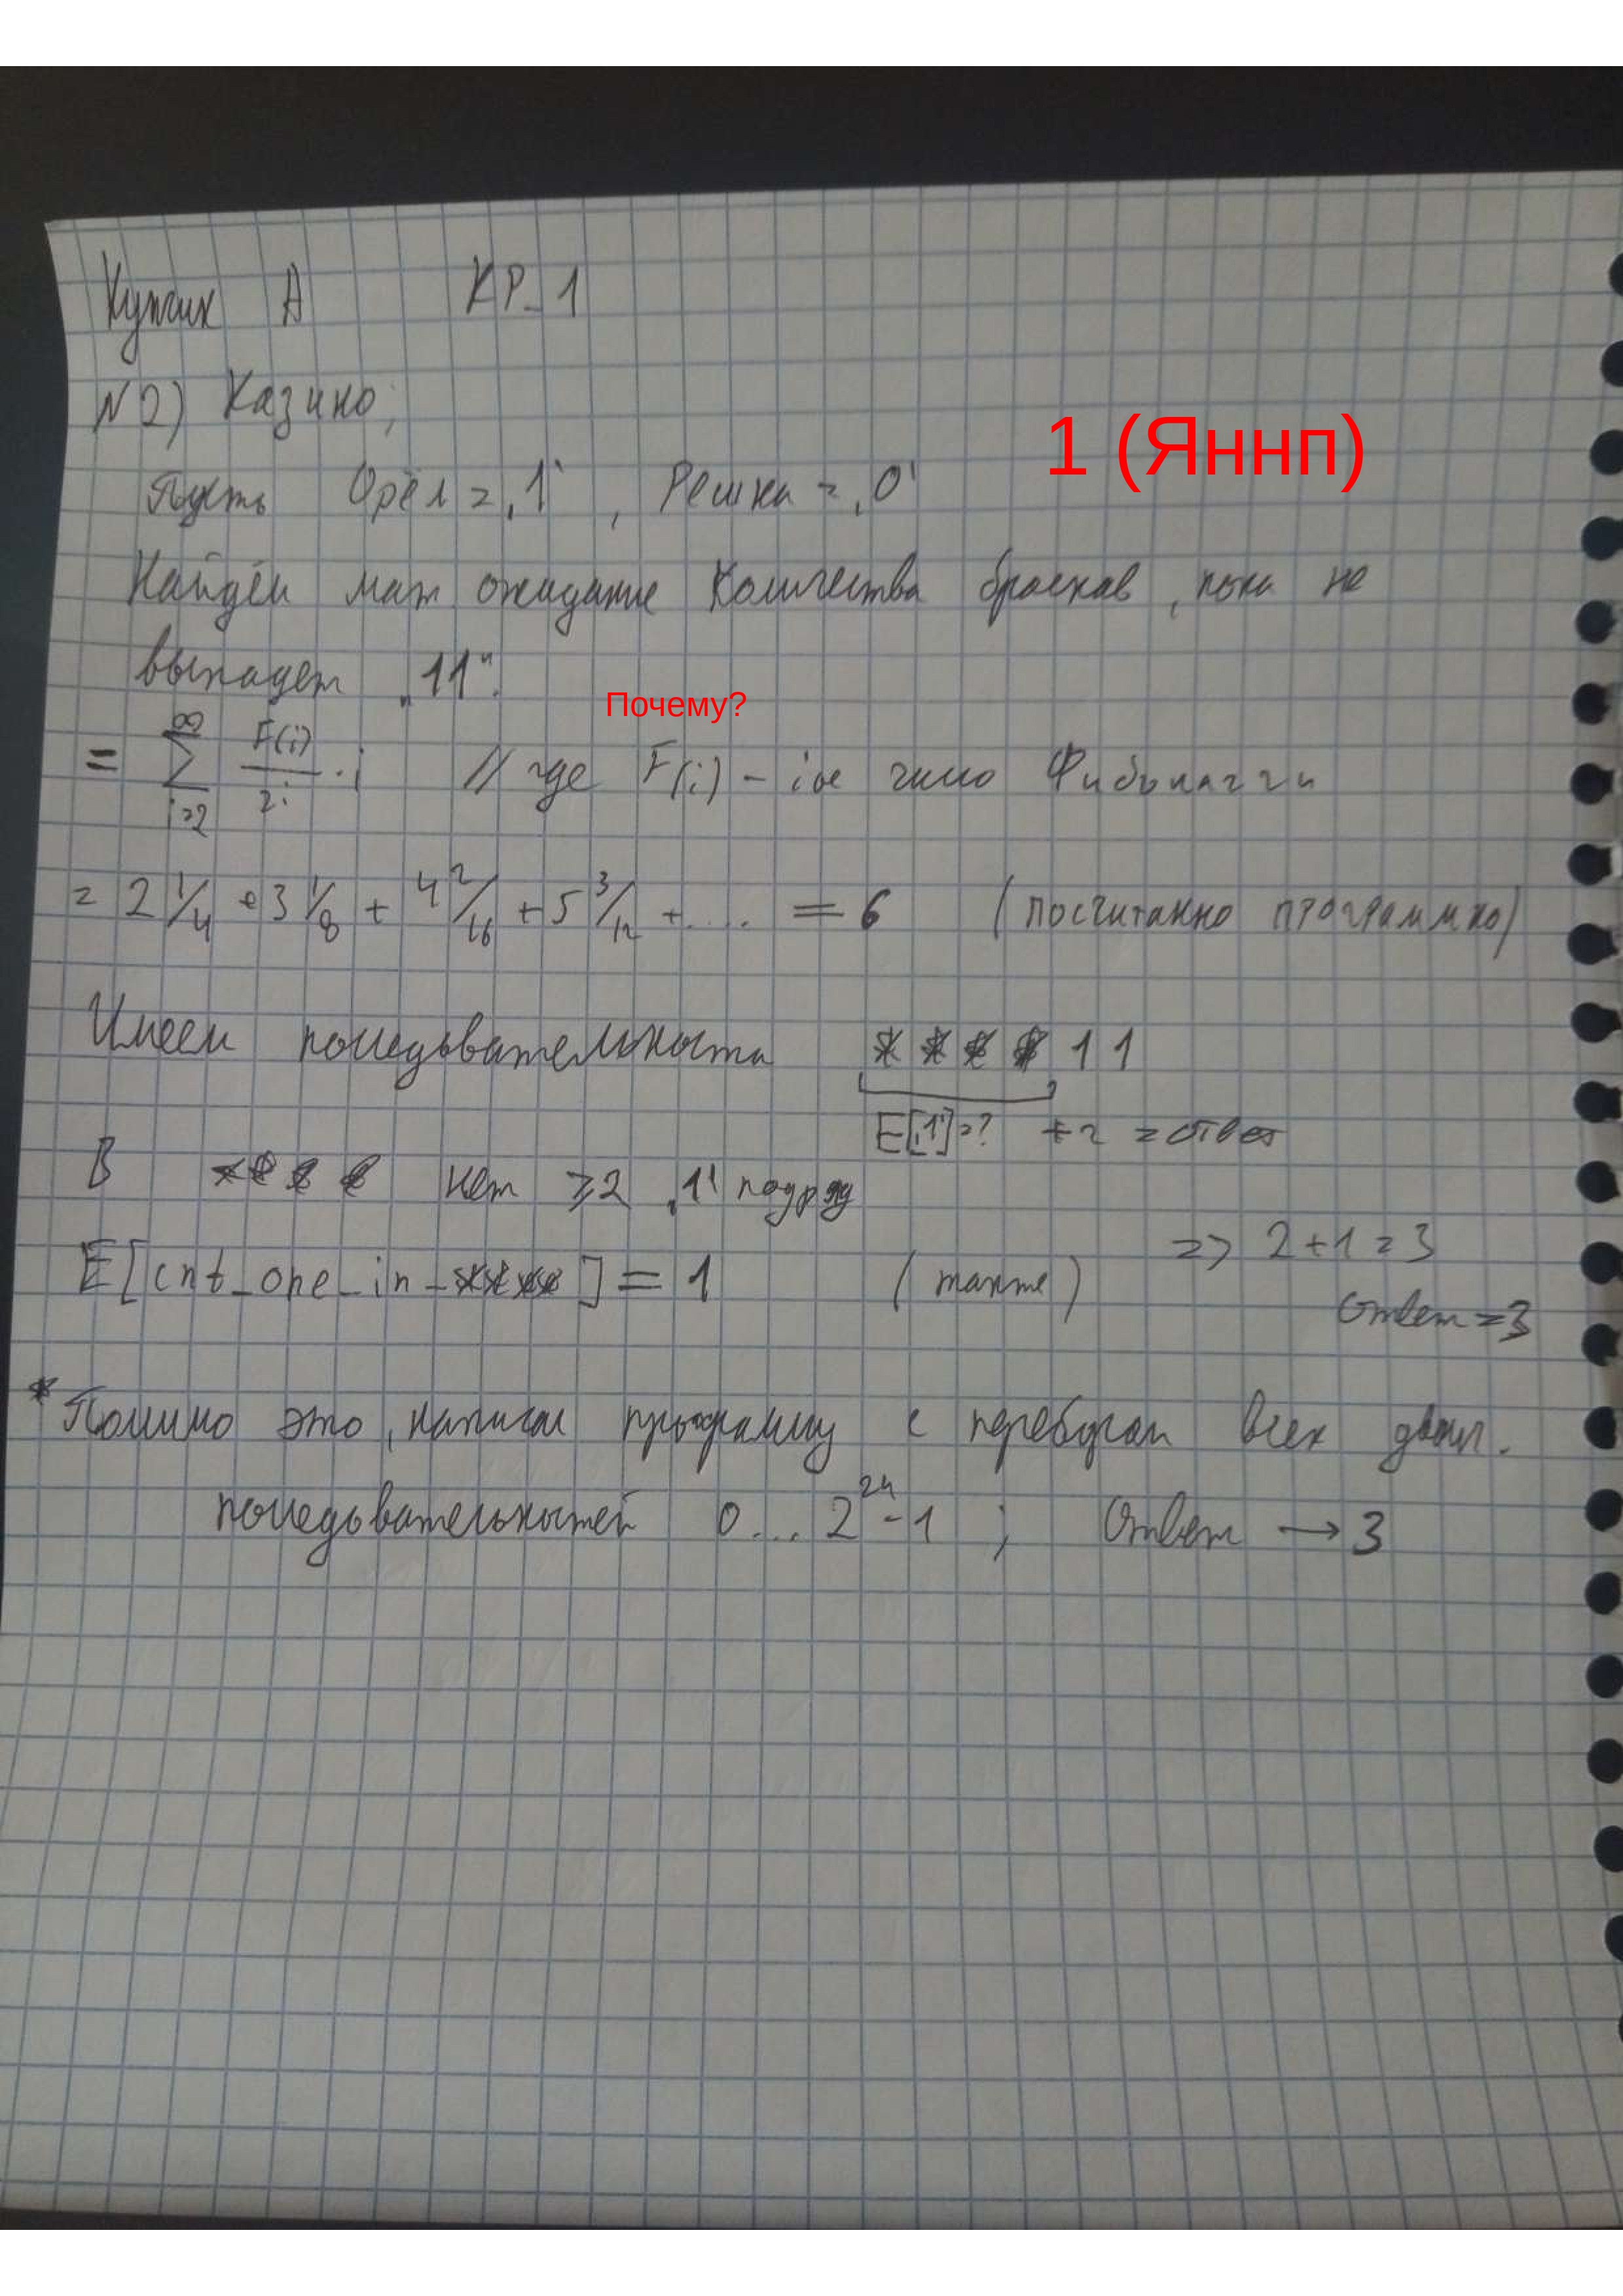 Купчик А КР_1
N2) Казино;
1 (Яннп)
Пусть Орёл = "1", Решка = "0"
Найдём мат. ожидание количества бросков, пока не
выпадет "11".
Почему?
= ∑ i=2 ∞ F(i)/2^i · i // где F(i) - iое число Фибоначчи
= 2 1/4 + 3 1/8 + 4 2/16 + 5 3/12 + .... = 6 (посчитанно программно)
Имеем последовательность * * * * 1 1
E["1"]=? + 2 = ответ
В * * * * нет ⩾2 "1" подряд
=> 2+1=3
E[cnt_one_in_****] = 1 (также)
Ответ = 3
* Помимо это, написал программу с перебором всех двоич.
последовательностей 0 ... 2^24 - 1 ; Ответ → 3